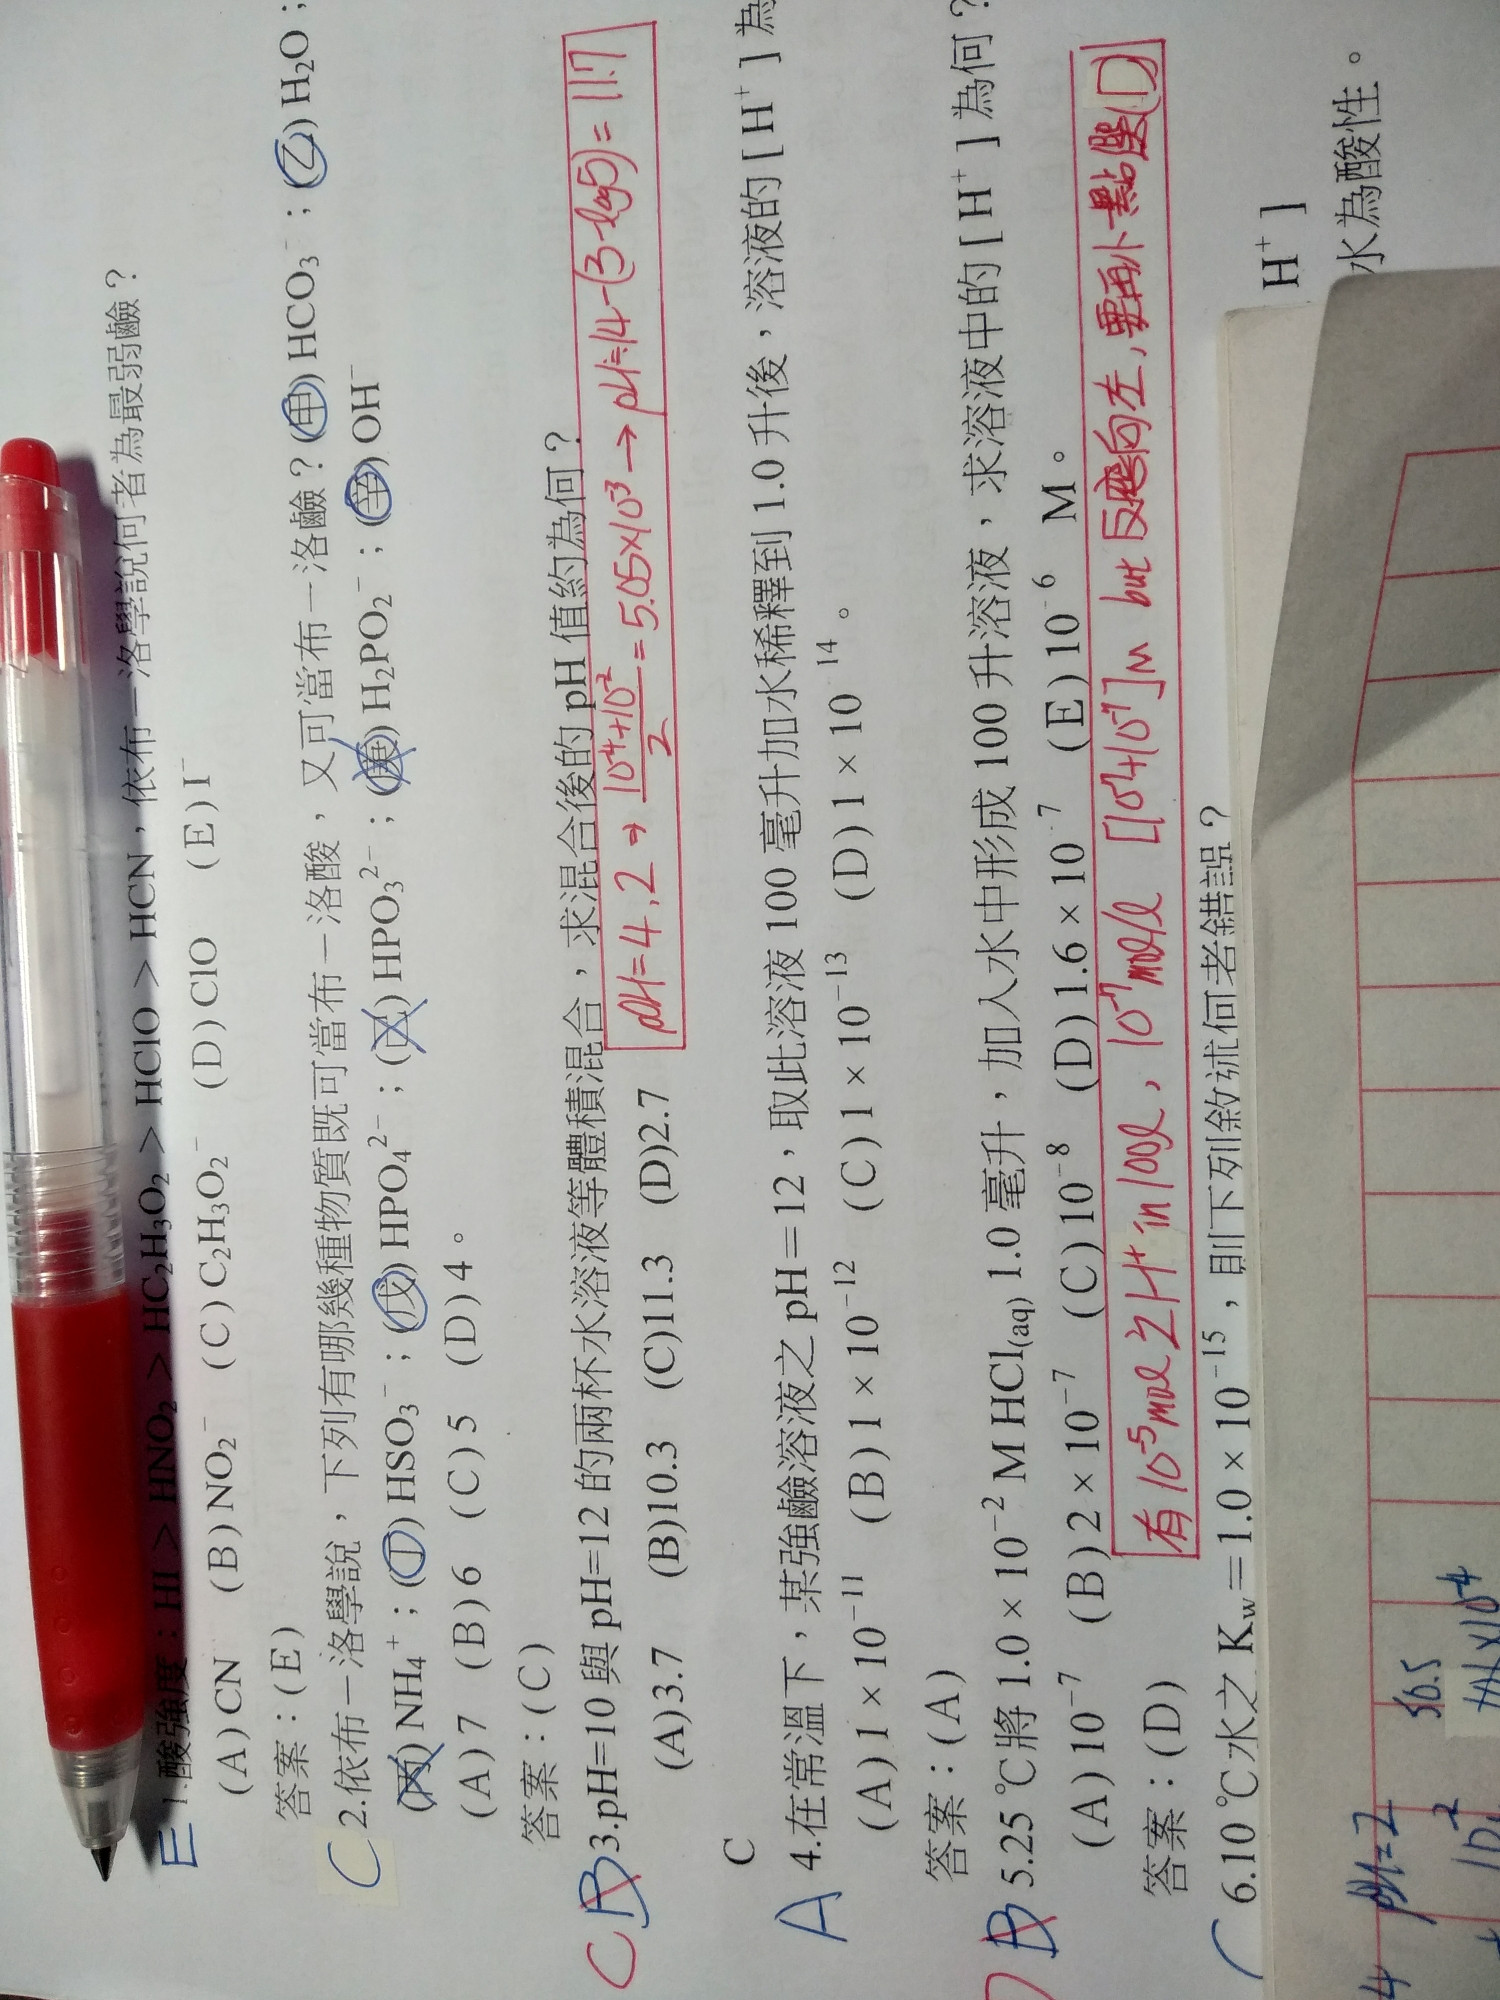 E 1.酸強度：HI > HNO₂ > HC₂H₃O₂ > HClO > HCN，依布－洛學說何者為最弱鹼？
(A)CN⁻ (B)NO₂⁻ (C)C₂H₃O₂⁻ (D)ClO⁻ (E)I⁻
答案：(E)
C 2.依布－洛學說，下列有哪幾種物質既可當布－洛酸，又可當布－洛鹼？(甲)HCO₃⁻；(乙)H₂O；
(丙)NH₄⁺；(丁)HSO₃⁻；(戊)HPO₄²⁻；(己)HPO₃²⁻；(庚)H₂PO₂⁻；(辛)OH⁻
(A)7 (B)6 (C)5 (D)4。
答案：(C)
C B 3.pH=10 與 pH=12 的兩杯水溶液等體積混合，求混合後的 pH 值約為何？
(A)3.7 (B)10.3 (C)11.3 (D)2.7
pOH=4,2→ 10⁻⁴+10⁻²/2 =5.05×10⁻³→pH≒14-(3-log5)=11.7
C
A 4.在常溫下，某強鹼溶液之 pH＝12，取此溶液 100 毫升加水稀釋到 1.0 升後，溶液的［H⁺］為
(A)1×10⁻¹¹ (B)1×10⁻¹² (C)1×10⁻¹³ (D)1×10⁻¹⁴。
答案：(A)
B 5.25℃將 1.0×10⁻² M HCl(aq) 1.0 毫升，加入水中形成 100 升溶液，求溶液中的［H⁺］為何？
(A)10⁻⁷ (B)2×10⁻⁷ (C)10⁻⁸ (D)1.6×10⁻⁷ (E)10⁻⁶ M。
有10⁻⁵mol之H⁺in 100ℓ，10⁻⁷mol/ℓ [10⁻⁷+10⁻⁷]M but 反應向左，要再小一點選(D)
答案：(D)
6.10℃水之 Kw＝1.0×10⁻¹⁵，則下列敘述何者錯誤？
H⁺］
水為酸性。
4 pH=2 56.5